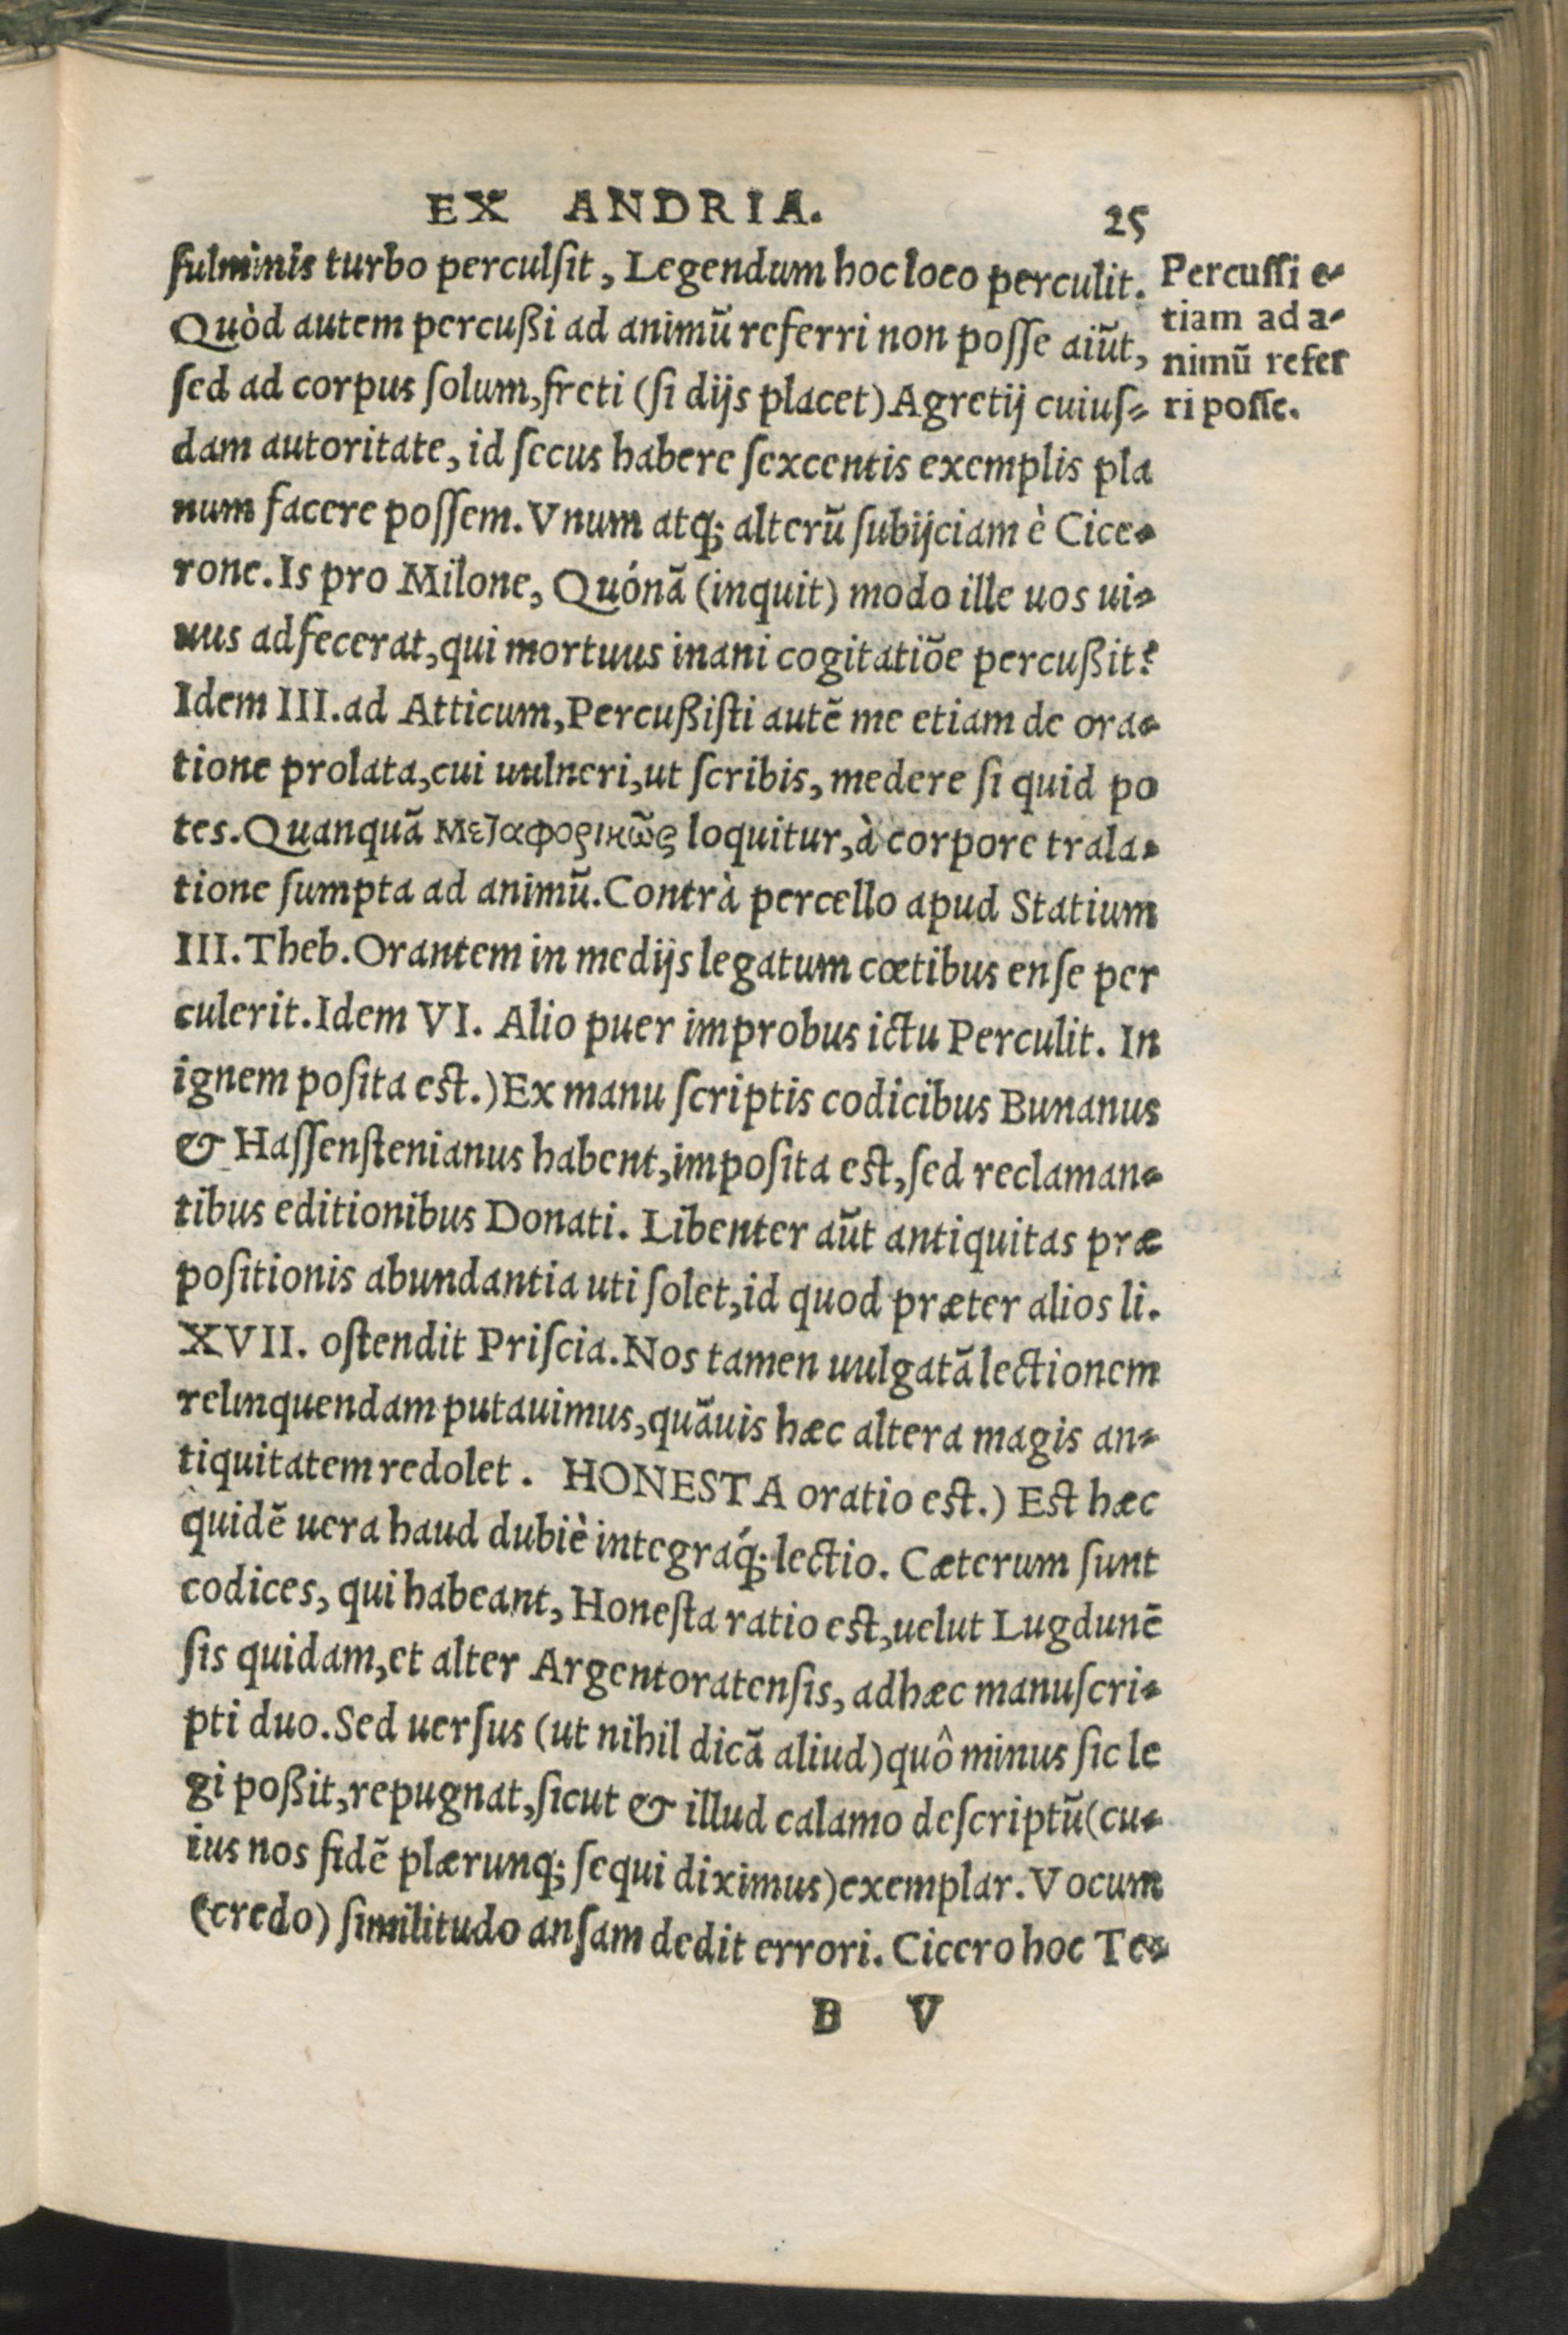 EX ANDRIA. 25
fulminis turbo perculſit, Legendum hoc loco perculit.
Quòd autem percußi ad animũ referri non poſſe aiũt,
ſed ad corpus ſolum, freti (ſi dijs placet) Agretij cuiuſ-
dam autoritate, id ſecus habere ſexcentis exemplis pla
num facere poſſem. Vnum atq; alterũ ſubijciam è Cice-
rone. Is pro Milone, Quónã (inquit) modo ille uos ui-
uus adfecerat, qui mortuus inani cogitatiõe percußit?
Idem III. ad Atticum, Percußiſti autẽ me etiam de ora-
tione prolata, cui uulneri, ut ſcribis, medere ſi quid po
tes. Quanquã μεταφορικῶς loquitur, à corpore trala-
tione ſumpta ad animũ. Contrà percello apud Statium
III. Theb. Orantem in medijs legatum cœtibus enſe per
culerit. Idem VI. Alio puer improbus ictu Perculit. In
ignem poſita eſt.) Ex manu ſcriptis codicibus Bunanus
& Haſſenſtenianus habent, impoſita eſt, ſed reclaman-
tibus editionibus Donati. Libenter aũt antiquitas præ
poſitionis abundantia uti ſolet, id quod præter alios li.
XVII. oſtendit Priſcia. Nos tamen uulgatã lectionem
relinquendam putauimus, quãuis hæc altera magis an-
tiquitatem redolet. HONESTA oratio eſt.) Eſt hæc
quidẽ uera haud dubiè integraq́; lectio. Cæterum ſunt
codices, qui habeant, Honeſta ratio eſt, uelut Lugdunẽ
ſis quidam, et alter Argentoratenſis, adhæc manuſcri-
pti duo. Sed uerſus (ut nihil dicã aliud) quô minus ſic le
gi poßit, repugnat, ſicut & illud calamo deſcriptũ (cu-
ius nos fidẽ plærunq; ſequi diximus) exemplar. Vocum
(credo) ſimilitudo anſam dedit errori. Cicero hoc Te-
B V
Percuſſi e-
tiam ad a-
nimũ refer
ri poſſe.